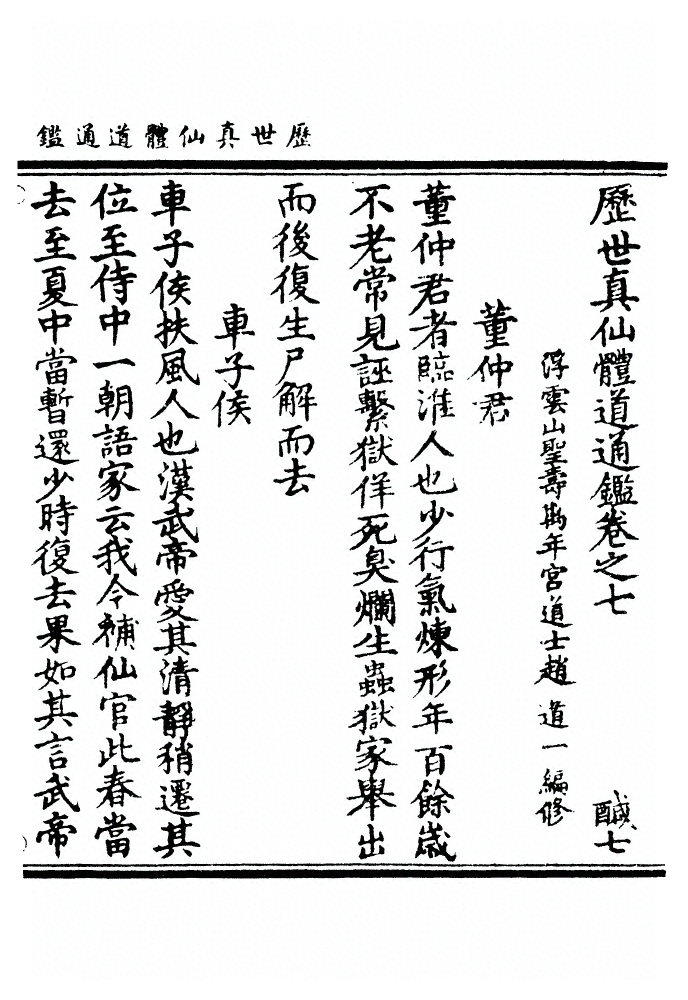 歷世真仙體道通鑑
歷世真仙體道通鑑卷之七 鹹七
浮雲山聖壽萬年宮道士趙道一編修
董仲君
董仲君者臨淮人也少行氣煉形年百餘歲
不老常見誣繫獄佯死臭爛生蟲獄家舉出
而後復生尸解而去
車子侯
車子侯扶風人也漢武帝愛其清靜稍遷其
位至侍中一朝語家云我今補仙官此春當
去至夏中當暫還少時復去果如其言武帝